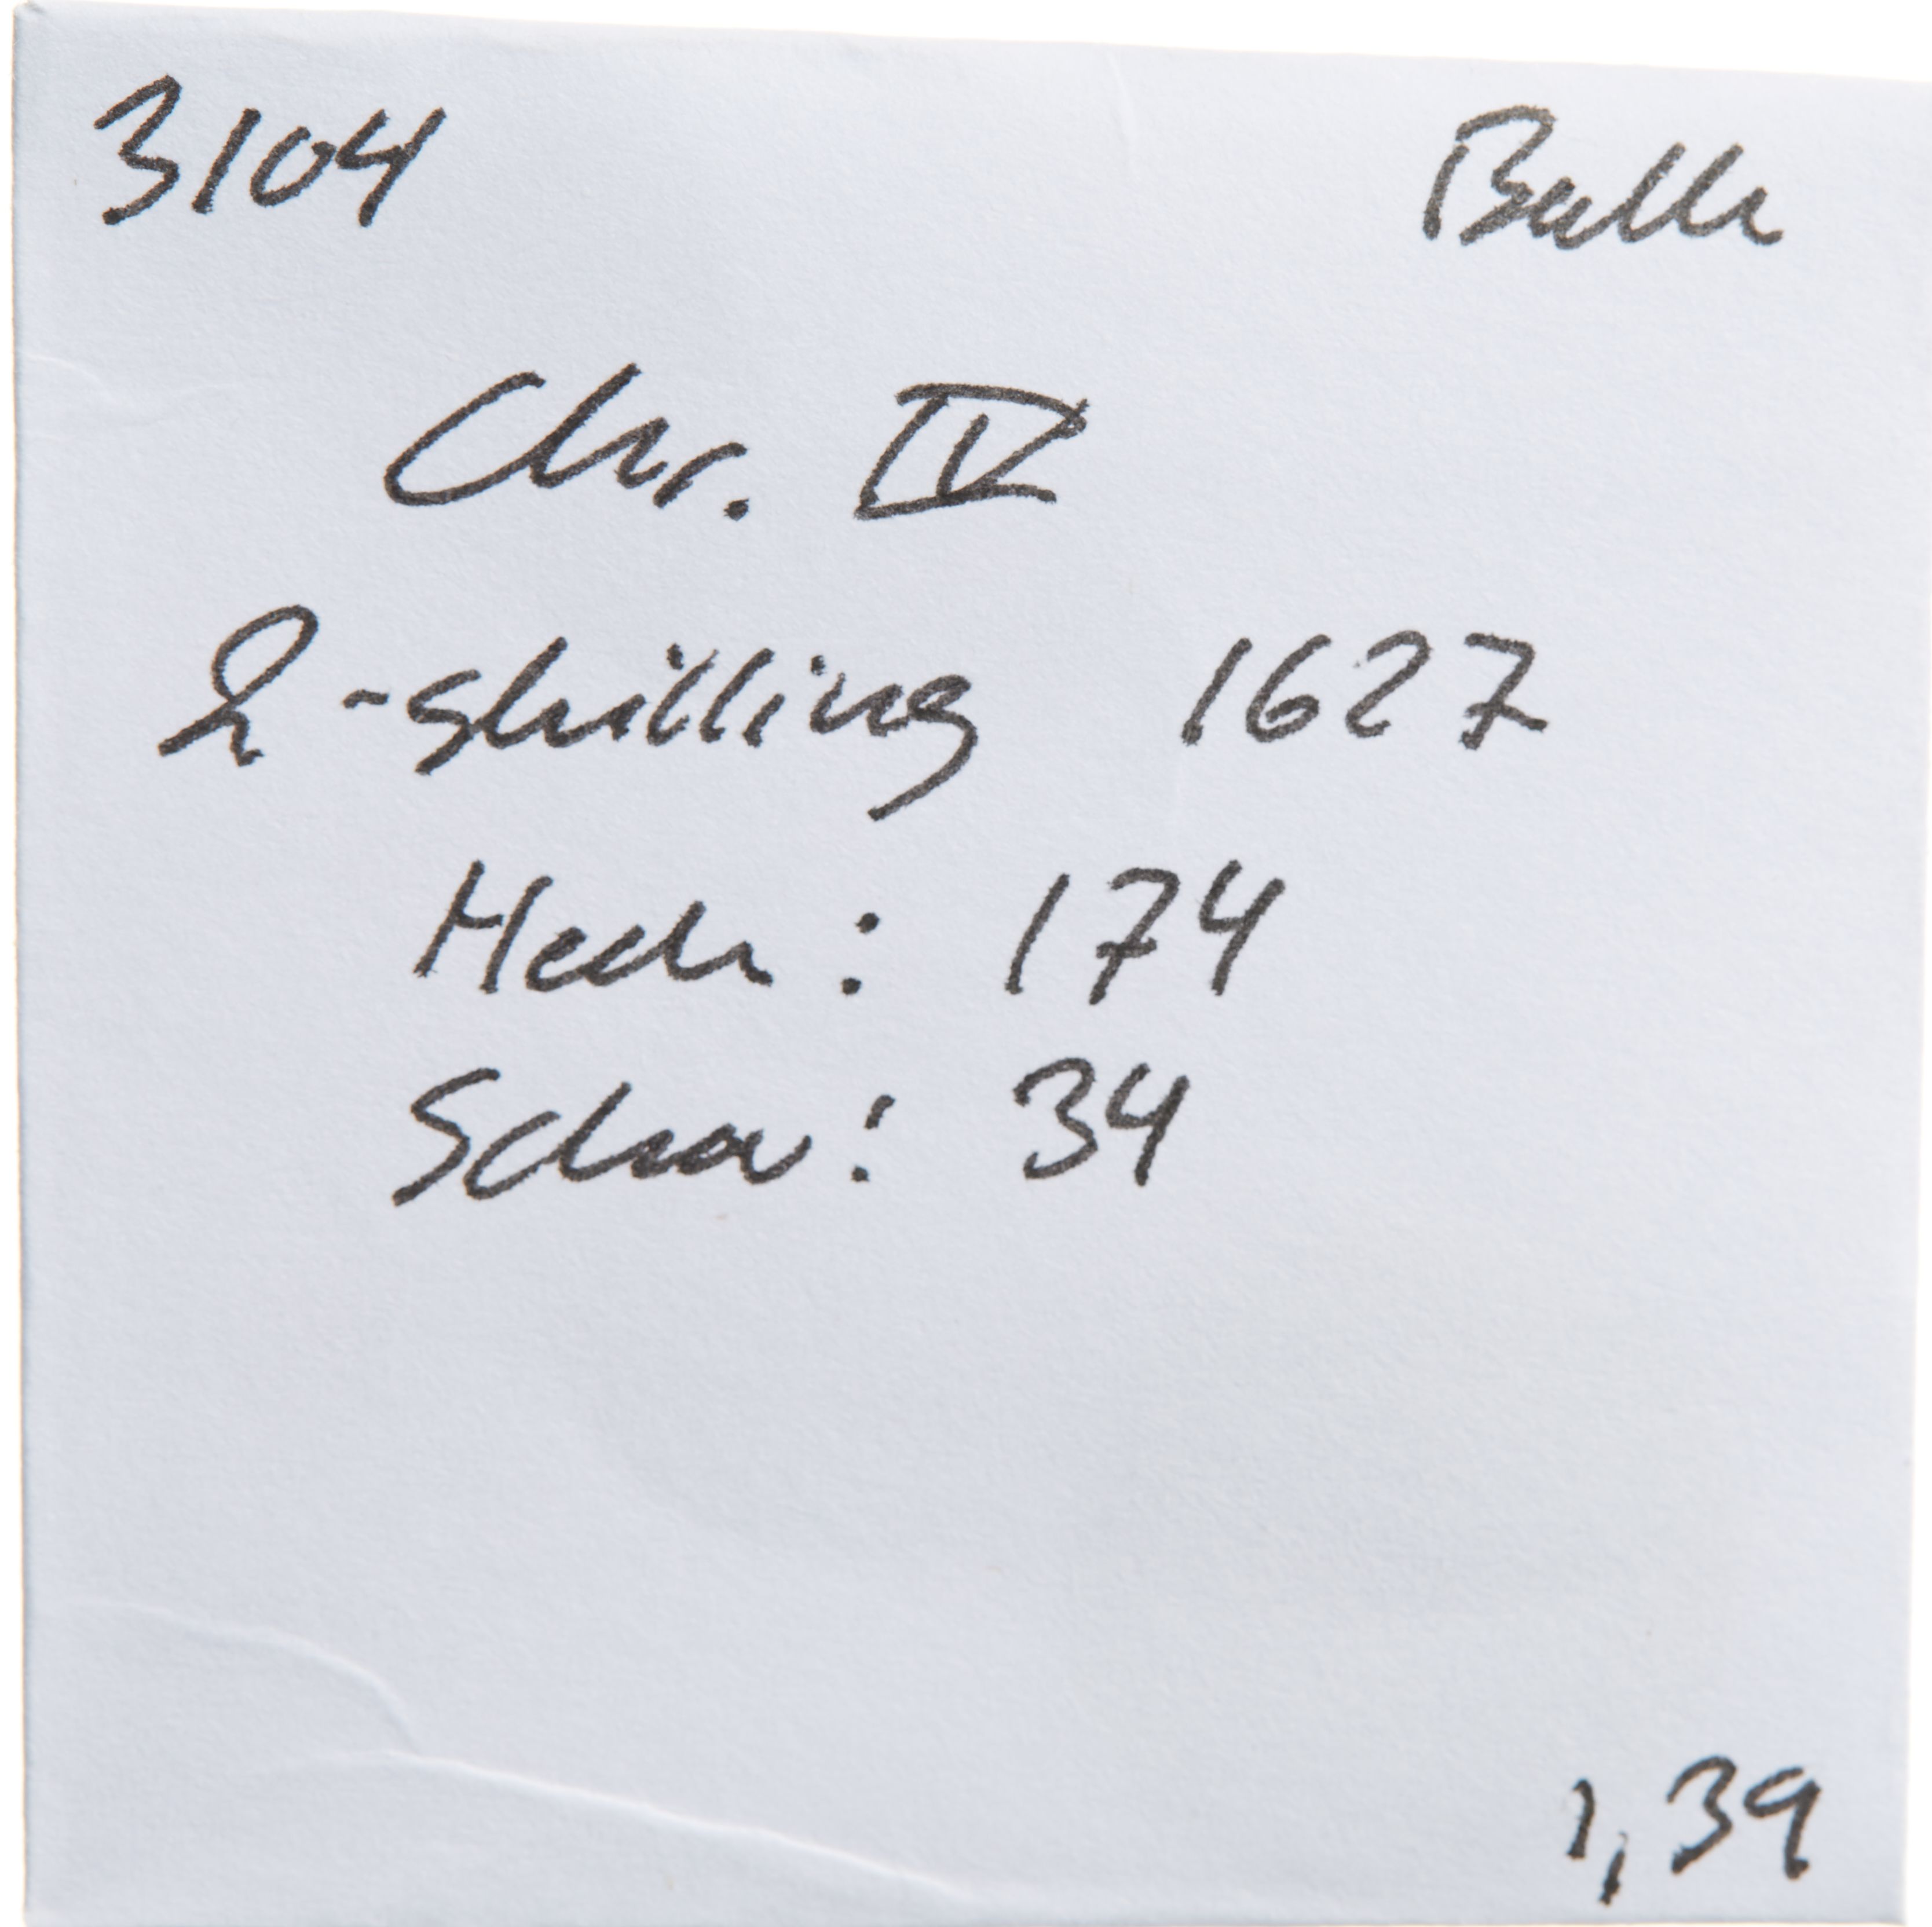 3104 Balle
Chr. IV
2-skilling 1627
Hede: 174
Schou: 34
1,39